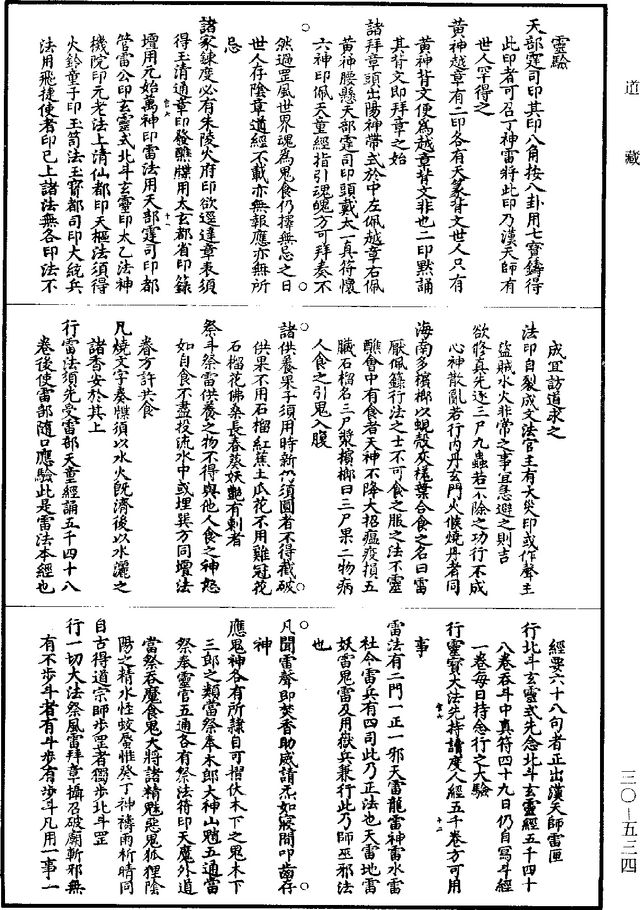 道藏
靈驗
天部霆司印其印八角按八卦用七寶鑄得
此印者可召丁神雷將此印乃漢天師有
世人罕得之
黃神越章有二印各有天篆背文世人只有
黃神背文便為越章背文非也二印默誦
其背文即拜章之始
諸拜章頭出陽神帶式於中左佩越章右佩
黃神腰懸天部霆司印頭戴太一真符懷
六神印佩天童經指引魂魄方可拜奏不
然過罡風世界魂為鬼食仍擇無忌之日
世人存陰章道經不載亦無報應亦無所
忌
諸家鍊度必有朱陵火府印欲逕達章表須
得玉清通章印發醮牒用太玄都省印籙
壇用元始萬神印雷法用天部霆司印都
管雷公印玄靈式北斗玄靈印太乙法神
機院印元老法上清仙都印天樞法須得
火鈴童子印玉笥法玉寶都司印大統兵
法用飛捷使者印已上諸法無各印法不
成宜訪道求之
法印自裂成文法官主有大災印或作聲主
盜賊水火非常之事宜急避之則吉
欲修真先逐三尸九蟲若不除之功行不成
心神散亂若行內丹玄門火候燒丹者同
海南多檳榔以蜆殼灰䕩葉合食之名曰雷
厭佩籙行法之士不可食之服之法不靈
醮會中有食者天神不降大招瘟疫損五
臟石榴名三尸漿檳榔曰三尸果二物病
人食之引鬼入腹
諸供養果子須用時新仍須圓者不得截破
供果不用石榴紅蕉土瓜花不用雞冠花
石榴花佛桑長春葵妖艷有刺者
祭斗祭雷供養之物不得與他人食之神怒
如自食不盡投流水中或埋巽方同壇法
眷方許共食
凡燒文字奏牒須以水火既濟後以水灑之
諸香安於其上
行雷法須先受雷部天童經誦五千四十八
卷後使雷部隨口應驗此是雷法本經也
經畢六十八句者正出漢天師雷匣
行北斗玄靈式先念北斗玄靈經五千四十
八卷吞斗中真符四十九日仍自寫斗經
一卷每日持念行之大驗
行靈寶大法先持誦度人經五千卷方可用
事
雷法有二門一正一邪天雷龍雷神雷水雷
社令雷兵有四司此乃正法也天雷地雷
妖雷鬼雷及用嶽兵兼行此乃師巫邪法
也
凡聞雷聲即焚香助威請炁如寢間叩齒存
神
應鬼神各有所隸自可摺伏木下之鬼木下
三郎之類當祭奉木郎大神山魈五通當
祭奉靈官五通各有祭法符印天魔外道
當祭吞魔食鬼大將諸精魅惡鬼狐狸陰
陽之精水性蛟蜃惟癸丁神禱雨祈晴同
自古得道宗師步罡者獨步北斗罡
行一切大法祭風雷拜章攝召破廟斬邪無
有不步斗者有斗步有步斗凡用一事一
三〇—五三四